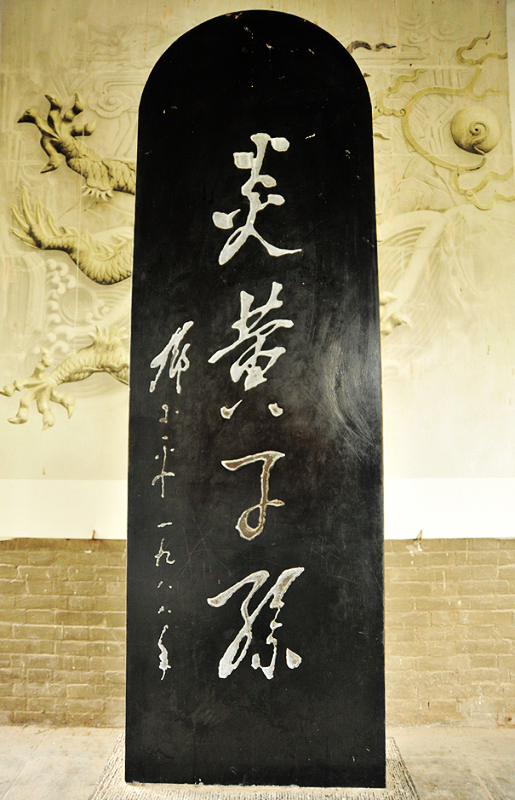 炎黄子孫
鄧小平 一九八八年